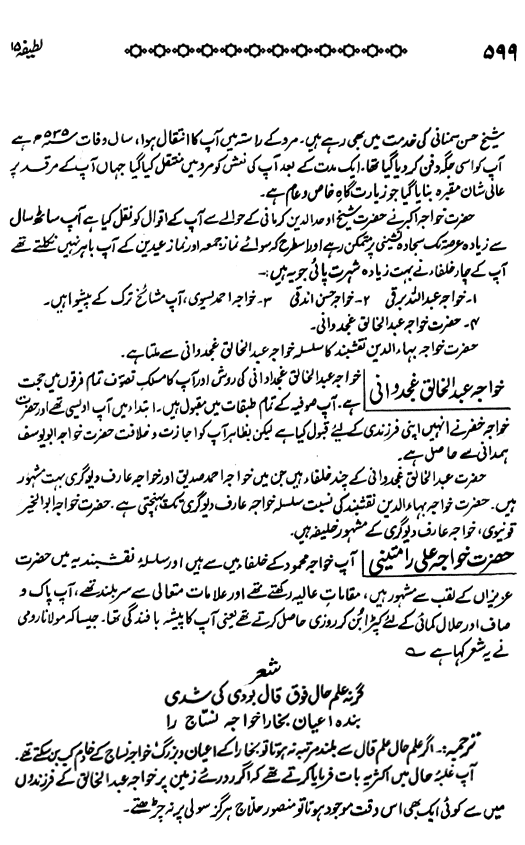 ۵۹۹ لطیفہ ۱۵
شیخ حسن سمنانی کی خدمت میں بھی رہے ہیں۔ مرو کے راستہ میں آپ کا انتقال ہوا، سال وفات ۵۳۵ھ ہے
آپ کو اسی جگہ دفن کر دیا گیا تھا۔ ایک مدت کے بعد آپ کی نعش کو مرو میں منتقل کیا گیا جہاں آپ کے مرقد پر
عالی شان مقبرہ بنایا گیا جو زیارت گاہِ خاص و عام ہے۔
حضرت خواجہ اکبر نے حضرت شیخ اوحد الدین کرمانی کے حوالے سے آپ کے اقوال کو نقل کیا ہے آپ ساٹھ سال
سے زیادہ عرصہ تک سجادہ نشینی پر متمکن رہے اور اسطرح کہ سوائے نماز جمعہ اور نماز عیدین کے آپ باہر نہیں نکلتے تھے
آپ کے چار خلفاء نے بہت زیادہ شہرت پائی جو یہ ہیں:۔
۱۔ خواجہ عبداللہ برقی ۲۔ خواجہ حسن اندقی ۳۔ خواجہ احمد یسوی، آپ مشائخ ترک کے پیشوا ہیں۔
۴۔ حضرت خواجہ عبدالخالق غجدوانی۔
حضرت خواجہ بہاء الدین نقشبند کا سلسلہ خواجہ عبدالخالق غجدوانی سے ملتا ہے۔
خواجہ عبدالخالق غجدوانی خواجہ عبدالخالق غجدوانی کی روش اور آپ کا مسلک تصوف تمام فرقوں میں حجت
ہے۔ آپ صوفیہ کے تمام طبقات میں مقبول ہیں۔ ابتدا میں آپ اویسی تھے اور حضرت
خواجہ خضر نے انہیں اپنی فرزندی کے لیے قبول کیا ہے لیکن بظاہر آپ کو اجازت و خلافت حضرت خواجہ ابو یوسف
ہمدانی سے حاصل ہے۔
حضرت عبدالخالق غجدوانی کے چند خلفاء ہیں جن میں خواجہ احمد صدیق اور خواجہ عارف دیوگری بہت مشہور
ہیں۔ حضرت خواجہ بہاء الدین نقشبند کی نسبت سلسلہ خواجہ عارف دیوگری تک پہنچتی ہے۔ حضرت خواجہ ابوالخیر
قونیوی، خواجہ عارف دیوگری کے مشہور خلیفہ ہیں۔
حضرت خواجہ علی رامتینی آپ خواجہ محمود کے خلفا میں سے ہیں اور سلسلۂ نقشبندیہ میں حضرت
عزیزاں کے لقب سے مشہور ہیں، مقاماتِ عالیہ رکھتے تھے اور علامات متعالی سے سربلند تھے، آپ پاک و
صاف اور حلال کمائی کے لئے کپڑا بُن کر روزی حاصل کرتے تھے یعنی آپ کا پیشہ بافندگی تھا۔ جیسا کہ مولانا رومی
نے یہ شعر کہا ہے
شعر
گرنہ علم حال فوق قال بودی کی شدی
بندہ اعیان بخارا خواجہ نساج را
ترجمہ:۔ اگر علم حال علم قال سے بلند مرتبہ نہ ہوتا تو بخارا کے اعیان و بزرگ خواجہ نساج کے خادم کب بن سکتے تھے۔
آپ غلبۂ حال میں اکثر یہ بات فرمایا کرتے تھے کہ اگر روئے زمین پر خواجہ عبدالخالق کے فرزندوں
میں سے کوئی ایک بھی اس وقت موجود ہوتا تو منصور حلاج ہرگز سولی پر نہ چڑھتے۔